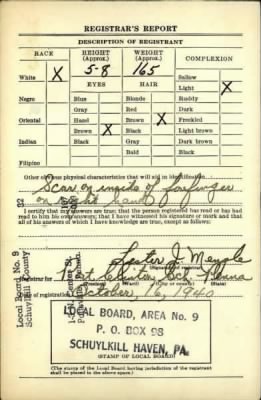 REGISTRAR'S REPORT
DESCRIPTION OF REGISTRANT
RACE
HEIGHT (Approx.)
WEIGHT (Approx.)
COMPLEXION
White X
5-8
165
Sallow
EYES
HAIR
Light X
Negro
Blue
Blonde
Ruddy
Gray
Red
Dark
Oriental
Hazel
Brown X
Freckled
Brown X
Black
Light brown
Indian
Black
Gray
Dark brown
Bald
Black
Filipino
Other obvious physical characteristics that will aid in identification
Scar on inside of forefinger
on right hand
I certify that my answers are true; that the person registered has read or has had
read to him his own answers; that I have witnessed his signature or mark and that
all of his answers of which I have knowledge are true, except as follows:
Local Board No. 9
Schuylkill County
Registrar for
Date of registration October 16, 1940
LOCAL BOARD, AREA No. 9
P. O. BOX 98
SCHUYLKILL HAVEN, PA.
(STAMP OF LOCAL BOARD)
(The stamp of the Local Board having jurisdiction of the registrant
shall be placed in the above space.)